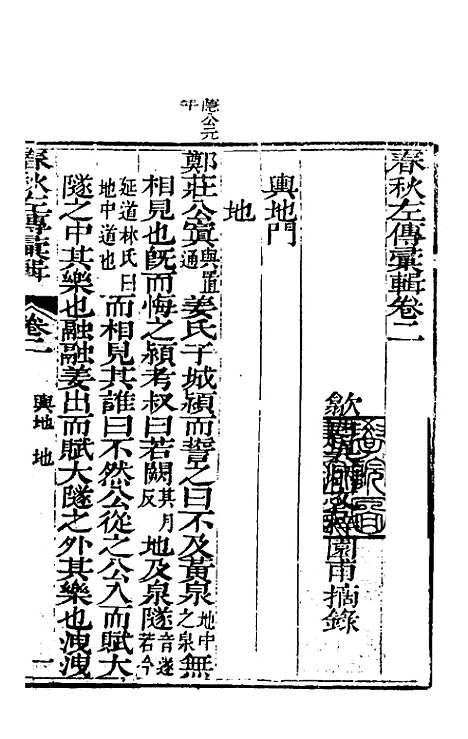 春秋左傳彙輯卷二
歙
園甫摘錄
輿地門
地
隱公元年
鄭莊公寘與置通姜氏于城潁而誓之曰不及黃泉地中之泉無
相見也既而悔之潁考叔曰若闕其月反地及泉隧音遂若今
延道林氏曰地中道也而相見其誰曰不然公從之公入而賦大
隧之中其樂也融融姜出而賦大隧之外其樂也洩洩
春秋左傳彙輯
卷二
輿地 地
一